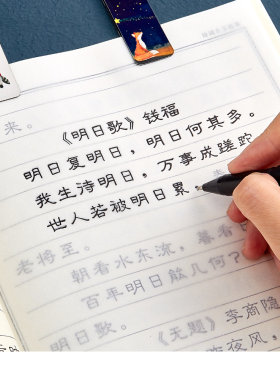 来。
《明日歌》钱福
明日复明日，明日何其多。
我生待明日，万事成蹉跎
世人若被明日累
老将至。
朝看水东流，暮看日
百年明日能几何？
明日歌。《无题》李商隐
昨夜风，